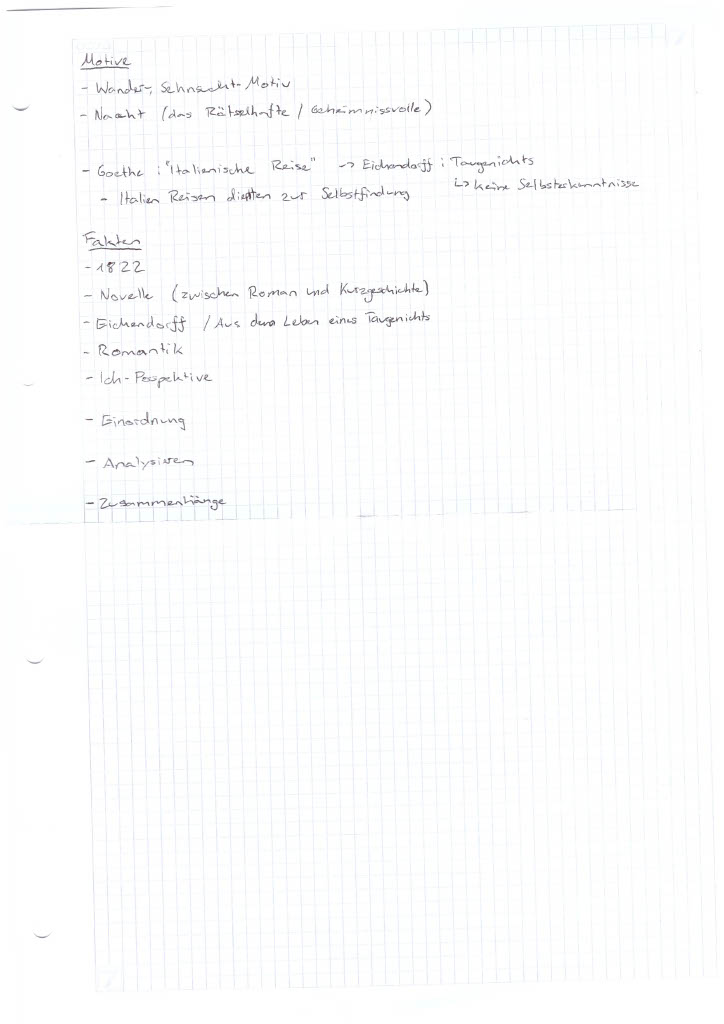 Motive
- Wander-, Sehnsucht-Motiv
- Nacht (das Rätselhafte / Geheimnissvolle)
- Goethe : "Italienische Reise" -> Eichendorff : Taugenichts
- Italien Reisen dienten zur Selbstfindung ↳ keine Selbsterkenntnisse
Fakten
- 1822
- Novelle (zwischen Roman und Kurzgeschichte)
- Eichendorff / Aus dem Leben eines Taugenichts
- Romantik
- Ich-Perspektive
- Einordnung
- Analysieren
- Zusammenhänge